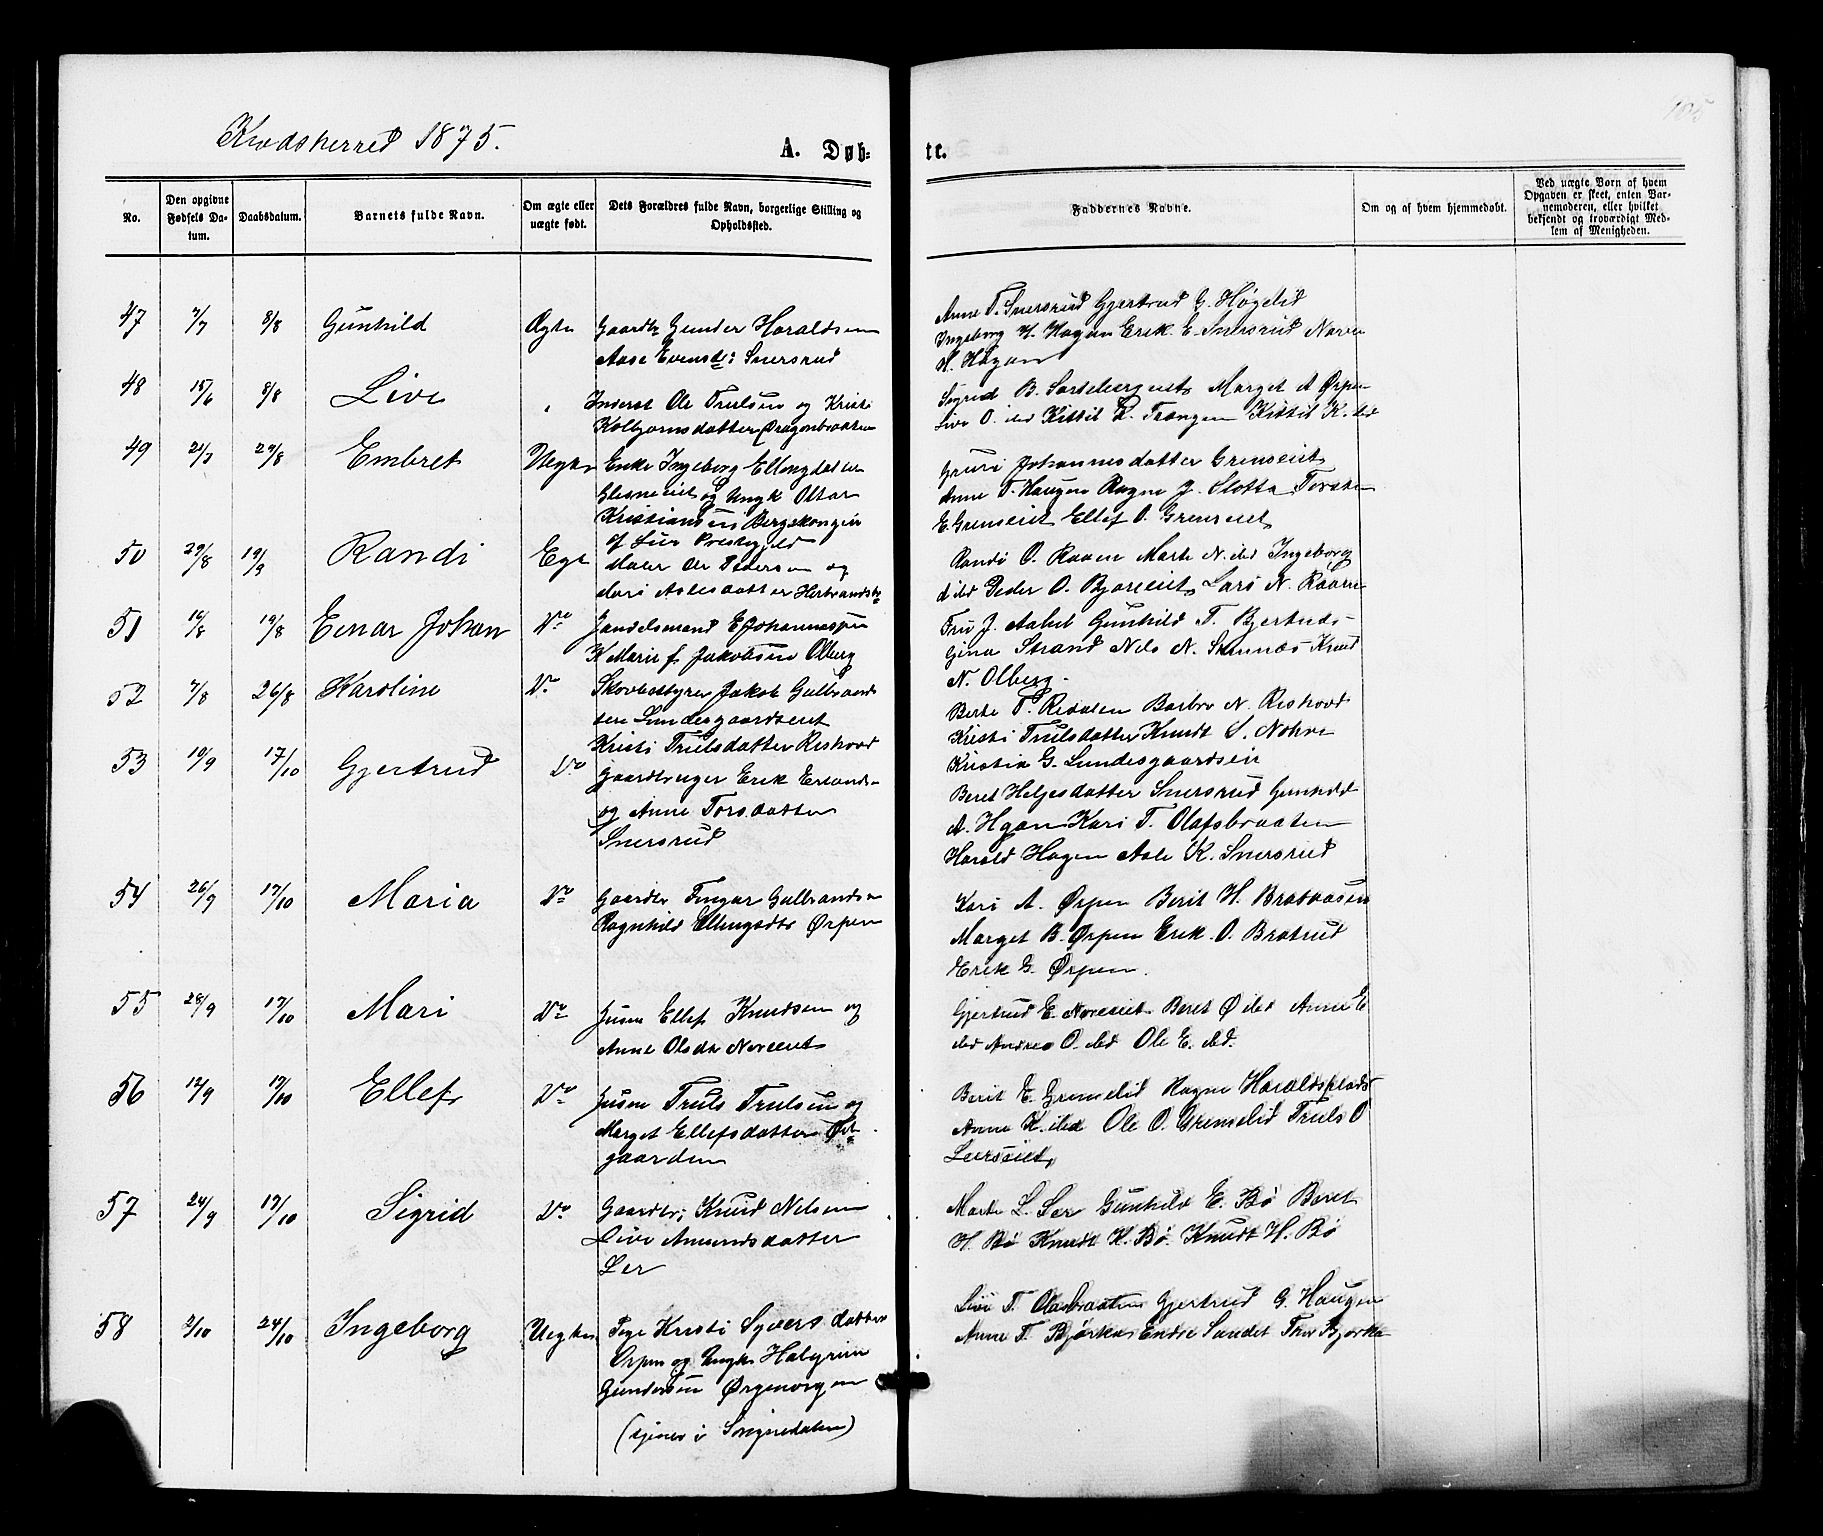 Krødsherred 1875.
A. Døb-
te.
105
No.
Den opgivne Fødsels Da-tum.
Daabsdatum.
Barnets fulde Navn.
Om ægte eller uægte født.
Dets Forældres fulde Navn, borgerlige Stilling og Opholdssted.
Faddernes Navne.
Om og af hvem hjemmedøbt.
Ved uægte Børn af hvem Opgaven er skeet, enten Bar-nemoderen, eller hvilket bekjendt og troværdigt Med-lem af Menigheden.
47 7/7 8/8 Gunhild Ægte Gaardbr Gunder Haraldsen
Aase Evensdt: Snersrud
Anne T. Snersrud Gjertrud G. Høgelid
Ingeborg H. Hagan Erik E. Snersrud Narve
H. Hagan
48 15/6 8/8 Live Inderst Ole Trulsen og Kristi
Kolbjørnsdatter
Sigrid B. Marget A Ørpen
Live O. ibd Kittil L. Trangen Kittil K. ibd
49 21/7 29/8 Embret Uegte Enke Ingeborg Ellingdatter
Glesneeiet og Ungk Ottar
Kristiansen Bergskongin
af Lier Prestegjeld
Guri Johannesdatter Grenseiet
Anne T. Haugen Ragne J. Slotta Torsten
E. Grenseiet Ellef O. Grenseiet
50 29/8 19/9 Randi Egte Maler Ole Pedersen og
Mari Aslesdatter
Randi O. Raaen Marte N. ibd Ingeborg
A ibd Peder O. Bjøreeiet Lars N. Raaen
51 16/8 19/8 Einar Johan Do Landelsmand E Johannessen
K Marie f. Jakobsen Olberg
Fru J. Aabel Gunhild T. Bjertnes
Gina Strand Nels N. Skinnæs Knud
N. Olberg.
52 7/8 26/8 Karoline Do Skovbestyrer Jakob Gulbrand
sen Lundesgaardseiet
Kristi Trulsdatter Reshovd
Berte T. Redalen Barbro N. Reshovd
Kristi Trulsdatter Knudt S. Nohre
Kristin G. Lundesgaardseie
53 19/9 17/10 Gjertrud Do Gaardbruger Erik Erlands-
og Anne Torsdatter
Snersrud
Beret Helgesdatter Snersrud Gunhild
A. Hgan Kari T. Olafsbraaten
Harald Hagen Asle K. Snersrud
54 26/9 17/10 Maria Do Gaardbr Fingar Gulbrandsen
Ragnhild Ellingsdtr Ørpen
Kari A. Ørpen Berit H. Brataasen
Marget B. Ørpen Erik. O. Bratrud
Erik G. Ørpen.
55 28/9 17/10 Mari Do Husm Ellef Knudsen og
Anne Olsdtr Noreeiet
Gjertrud E. Noreeiet Beret Ø ibd Anne E
ibd Andreas O. ibd Ole E. ibd.
56 12/9 17/10 Ellef Do Husm Truls Trulsen og
Marget Ellefsdatter Øst
gaarden
Berit E. Gremelid Ragne Haraldsplads
Anne K. ibd Ole O. Gremelid Truls O
Leerseiet
57 24/9 17/10 Sigrid Do Gaardbr: Knud Nelsen
Live Amundsdatter
Ler
Marte L. Ler Gunhild E. Bø Beret
H. Bø Knudt K. Bø. Knudt H. Bø
58 2/10 24/10 Ingeborg Uegte Pige Kristi Syversdatter
Ørpen og Ungk Halgrim
Gundersen
(tjener i Soknedalen)
Live T. Olasbraaten Gjertrud G. Haugen
Anne T. Bjørkaas Endre Sandet Thor Bjørkaa